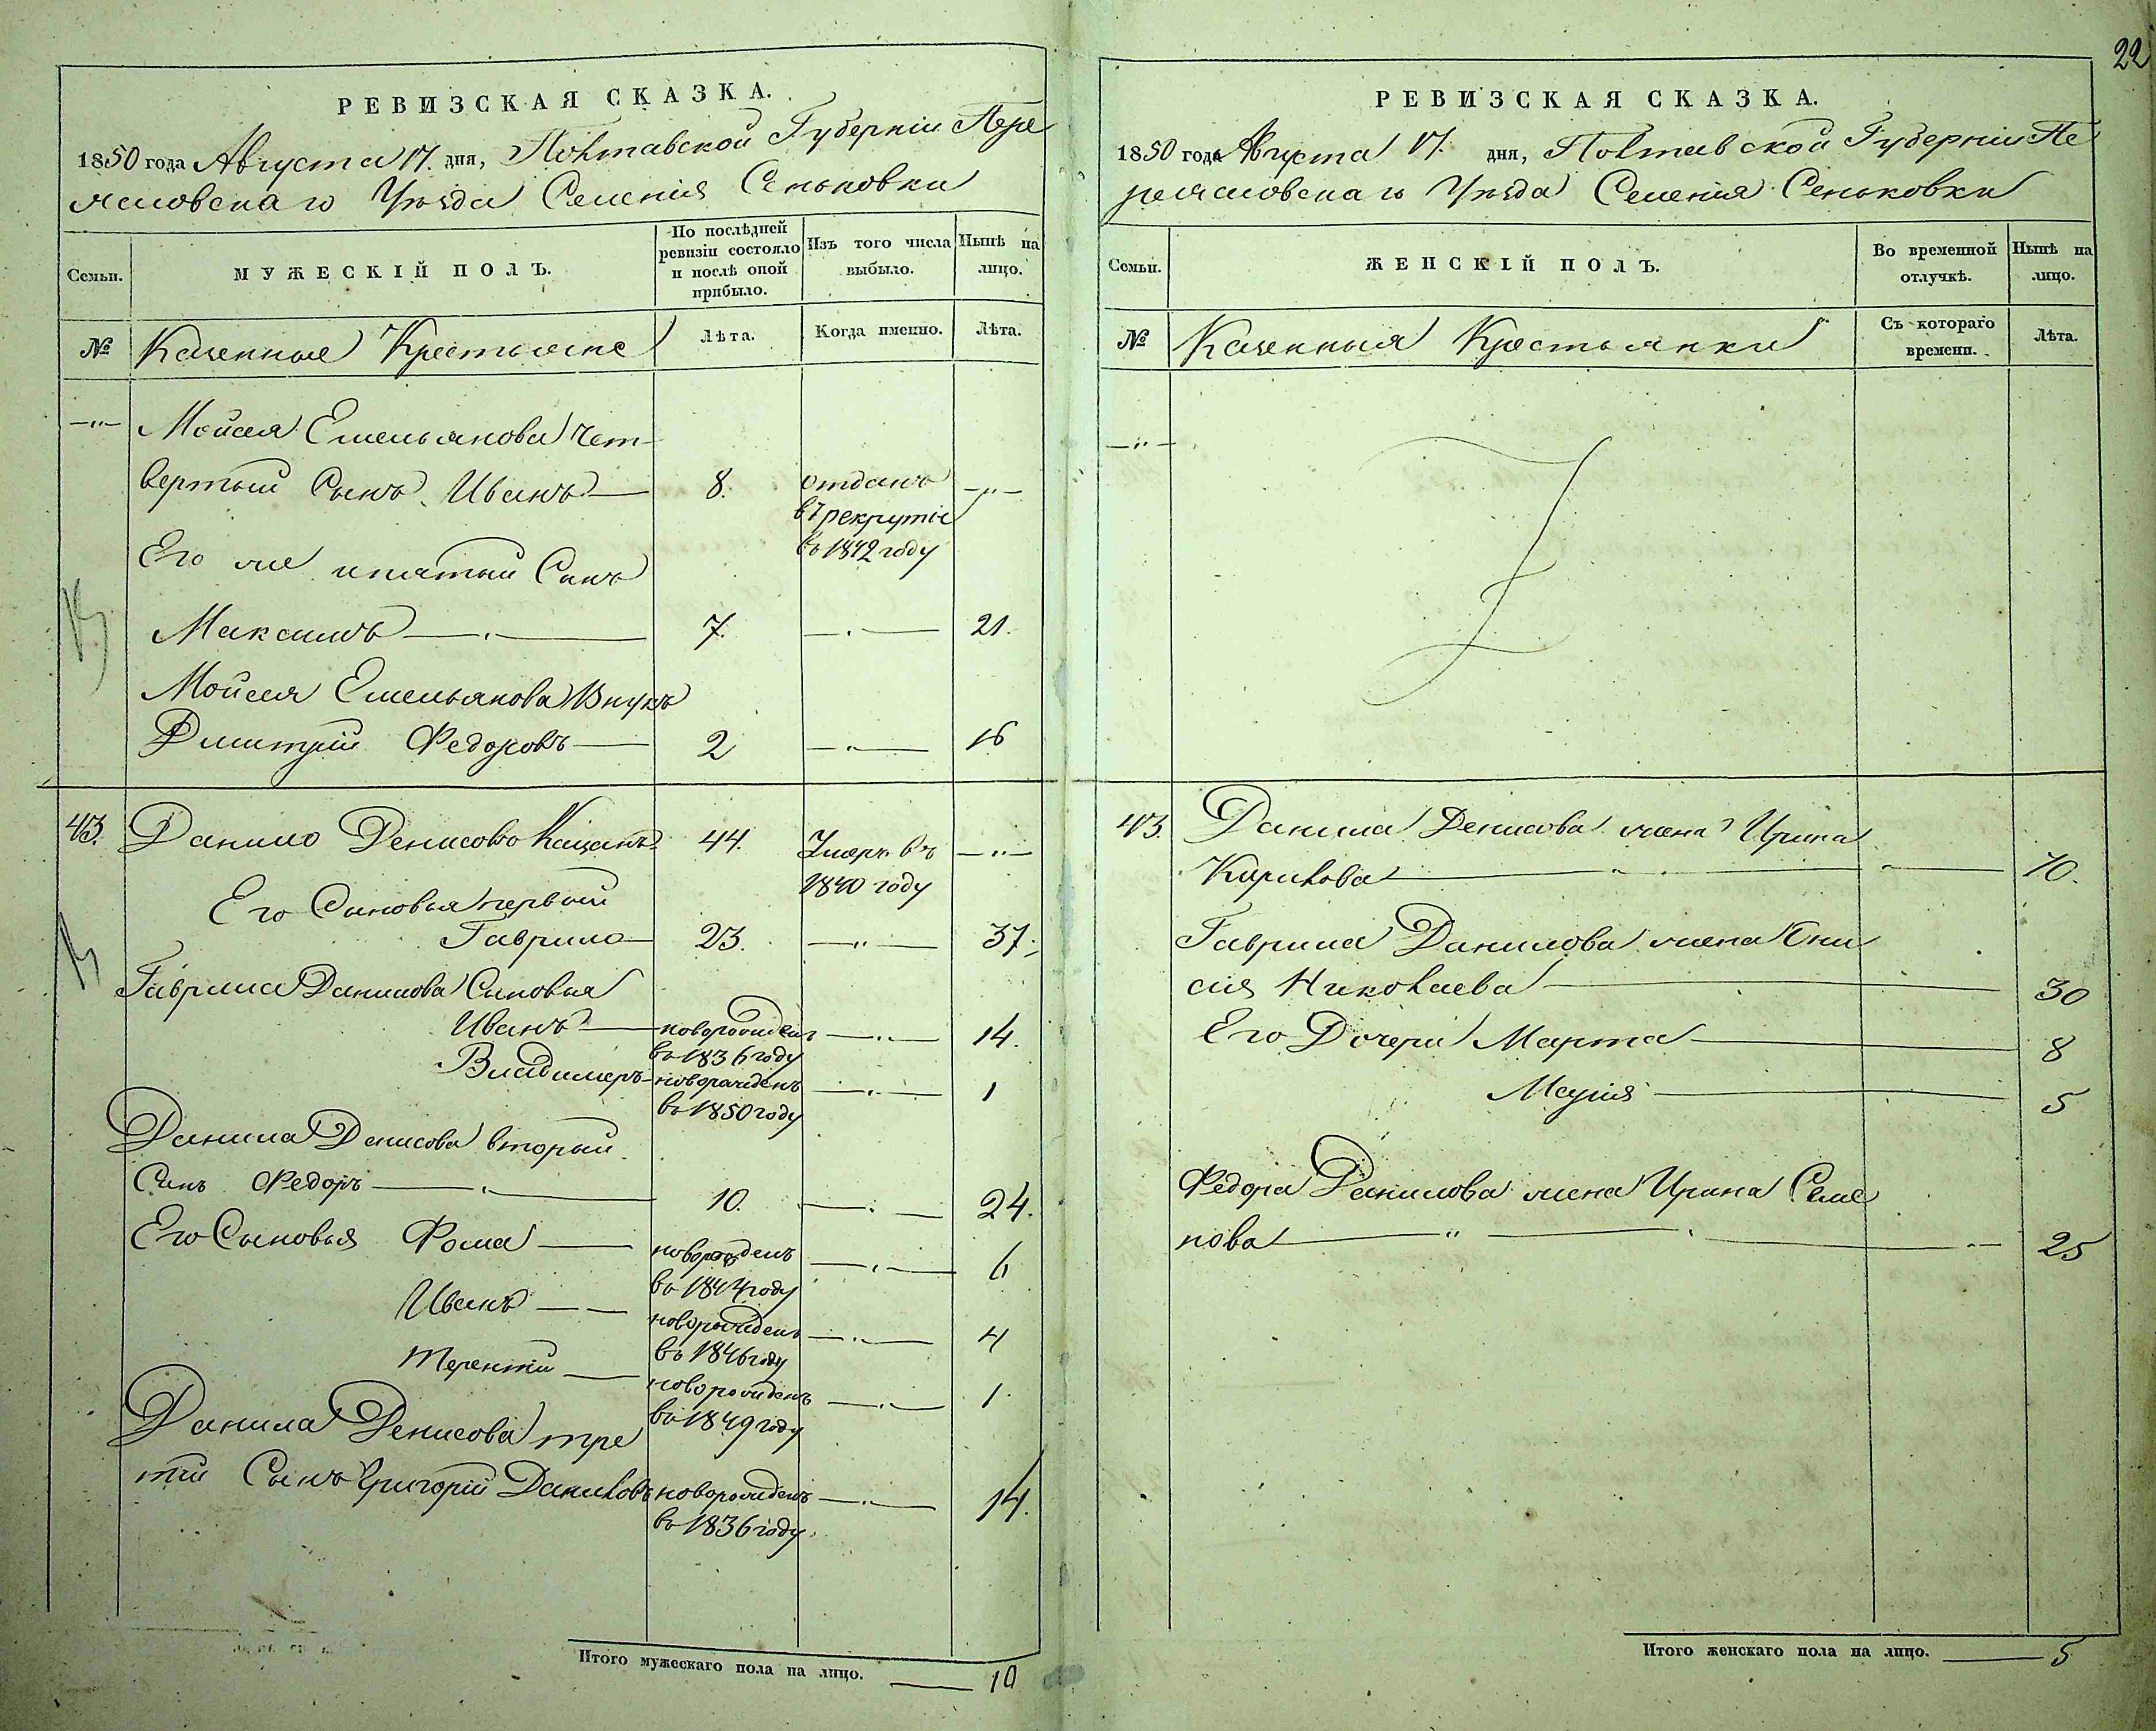 22
РЕВИЗСКАЯ СКАЗКА.
1850 года Августа 17. дня, Полтавской Губерніи Пере
яславскаго Уѣзда Селенія Сеньковки
Семьи.
МУЖЕСКІЙ ПОЛЪ.
По послѣдней ревизіи состояло и послѣ оной прибыло.
Изъ того числа выбыло.
Нынѣ на лицо.
№
Казенные Крестьяне
Лѣта.
Когда именно.
Лѣта.
Мойсея Емельянова чет
вертый Сынъ Иванъ 8. отданъ
в рекруты
въ 1842 году
Его же пятый Сынъ
Максимъ 7. 21.
Мойсея Емельянова Внукъ
Дмитрий Федоровъ 2 16
43. Данило Денисовъ 44. Умеръ въ
1840 году
Его Сыновья первый
Гаврило 23. 37.
Гаврила Данилова Сыновья
Иванъ новорожденъ 14.
въ 1836 году
Владимеръ новорожденъ 1
въ 1850 году
Данила Денисова вторый
Сынъ Федоръ 10. 24.
Его Сыновья Фома новорожденъ 6
въ 1844 году
Иванъ новорожденъ 4
въ 1846 году
Терентий новорожденъ 1.
въ 1849 году
Данила Денисова тре
тий Сынъ Григорій Даниловъ новорожденъ 14.
въ 1836 году
Итого мужескаго пола на лицо. 10
РЕВИЗСКАЯ СКАЗКА.
1850 года Августа 17. дня, Полтавской Губерніи Пе
реяславскаго Уѣзда Селенія Сеньковки
Семьи.
ЖЕНСКІЙ ПОЛЪ.
Во временной отлучкѣ.
Нынѣ на лицо.
№
Казенныя Крестьянки
Съ котораго времени.
Лѣта.
43. Данила Денисова жена Ирина
70.
Гаврила Данилова жена Они
сия Николаева 30
Его Дочери Марта 8
Марія 5
Федора Данилова жена Ирина Семе
нова 25
Итого женскаго пола на лицо. 5